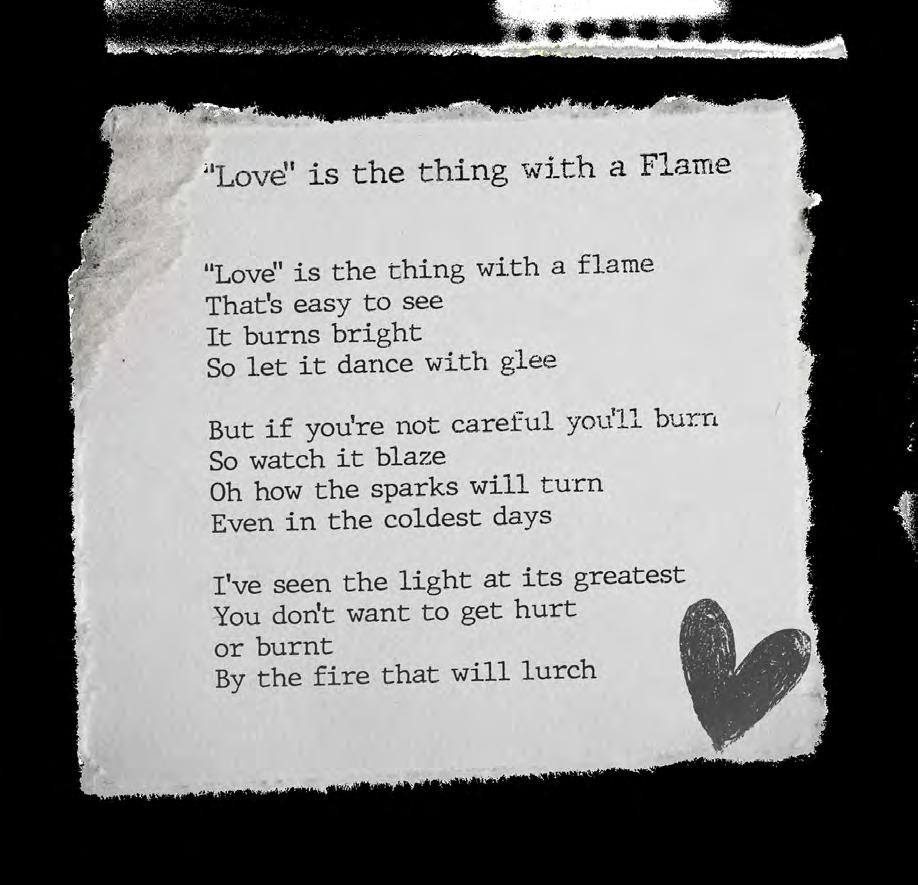 "Love" is the thing with a Flame
"Love" is the thing with a flame
That's easy to see
It burns bright
So let it dance with glee
But if you're not careful you'll burn
So watch it blaze
Oh how the sparks will turn
Even in the coldest days
I've seen the light at its greatest
You don't want to get hurt
or burnt
By the fire that will lurch